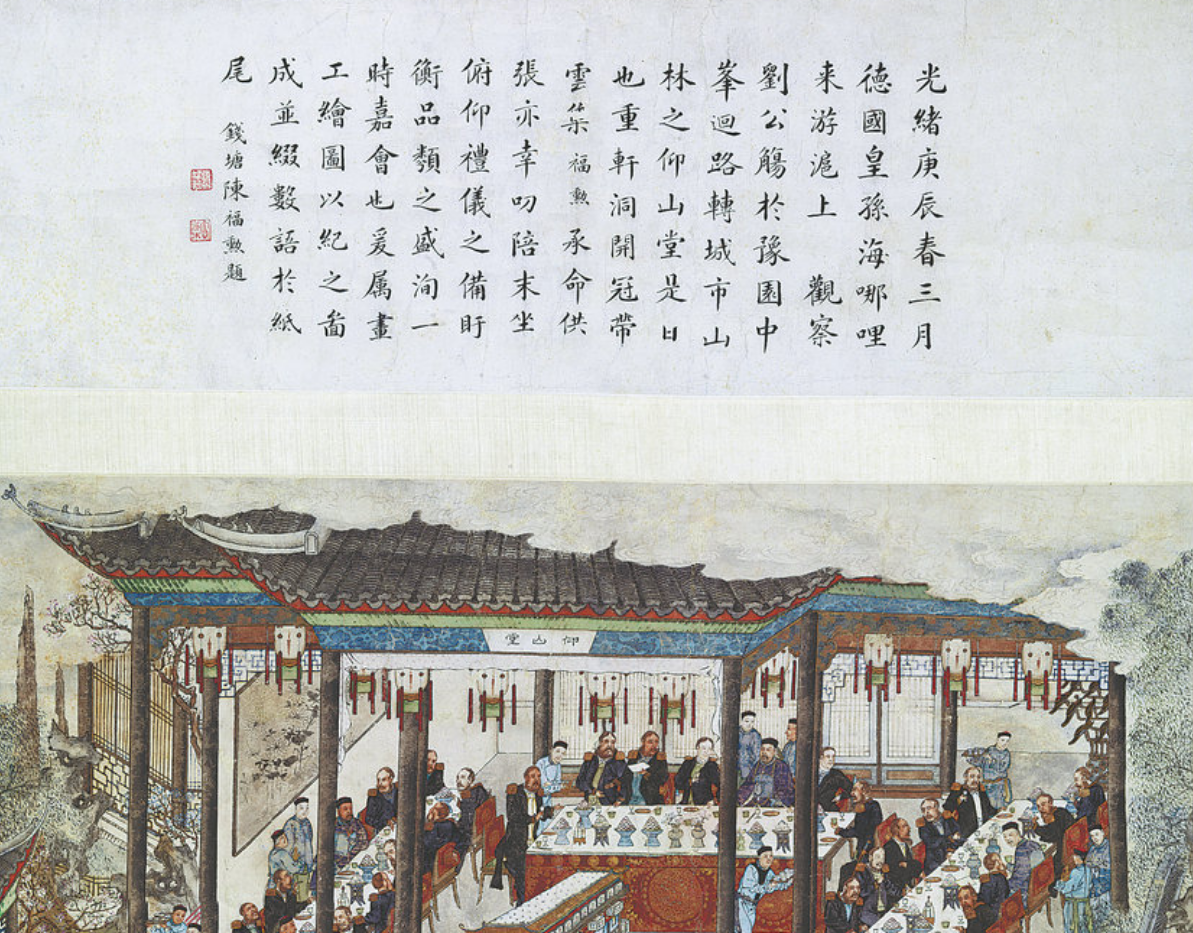 光緒庚辰春三月
德國皇孫海哪哩
来游滬上 觀察
劉公觴於豫園中
峯迴路轉城市山
林之仰山堂是日
也重軒洞開冠帶
雲 福勳承命供
張亦幸叨陪末坐
俯仰禮儀之備盱
衡品類之盛洵一
時嘉會也爰属畫
工繪圖以紀之啚
成並綴數語於紙
尾 錢塘陳福勳題
仰山堂